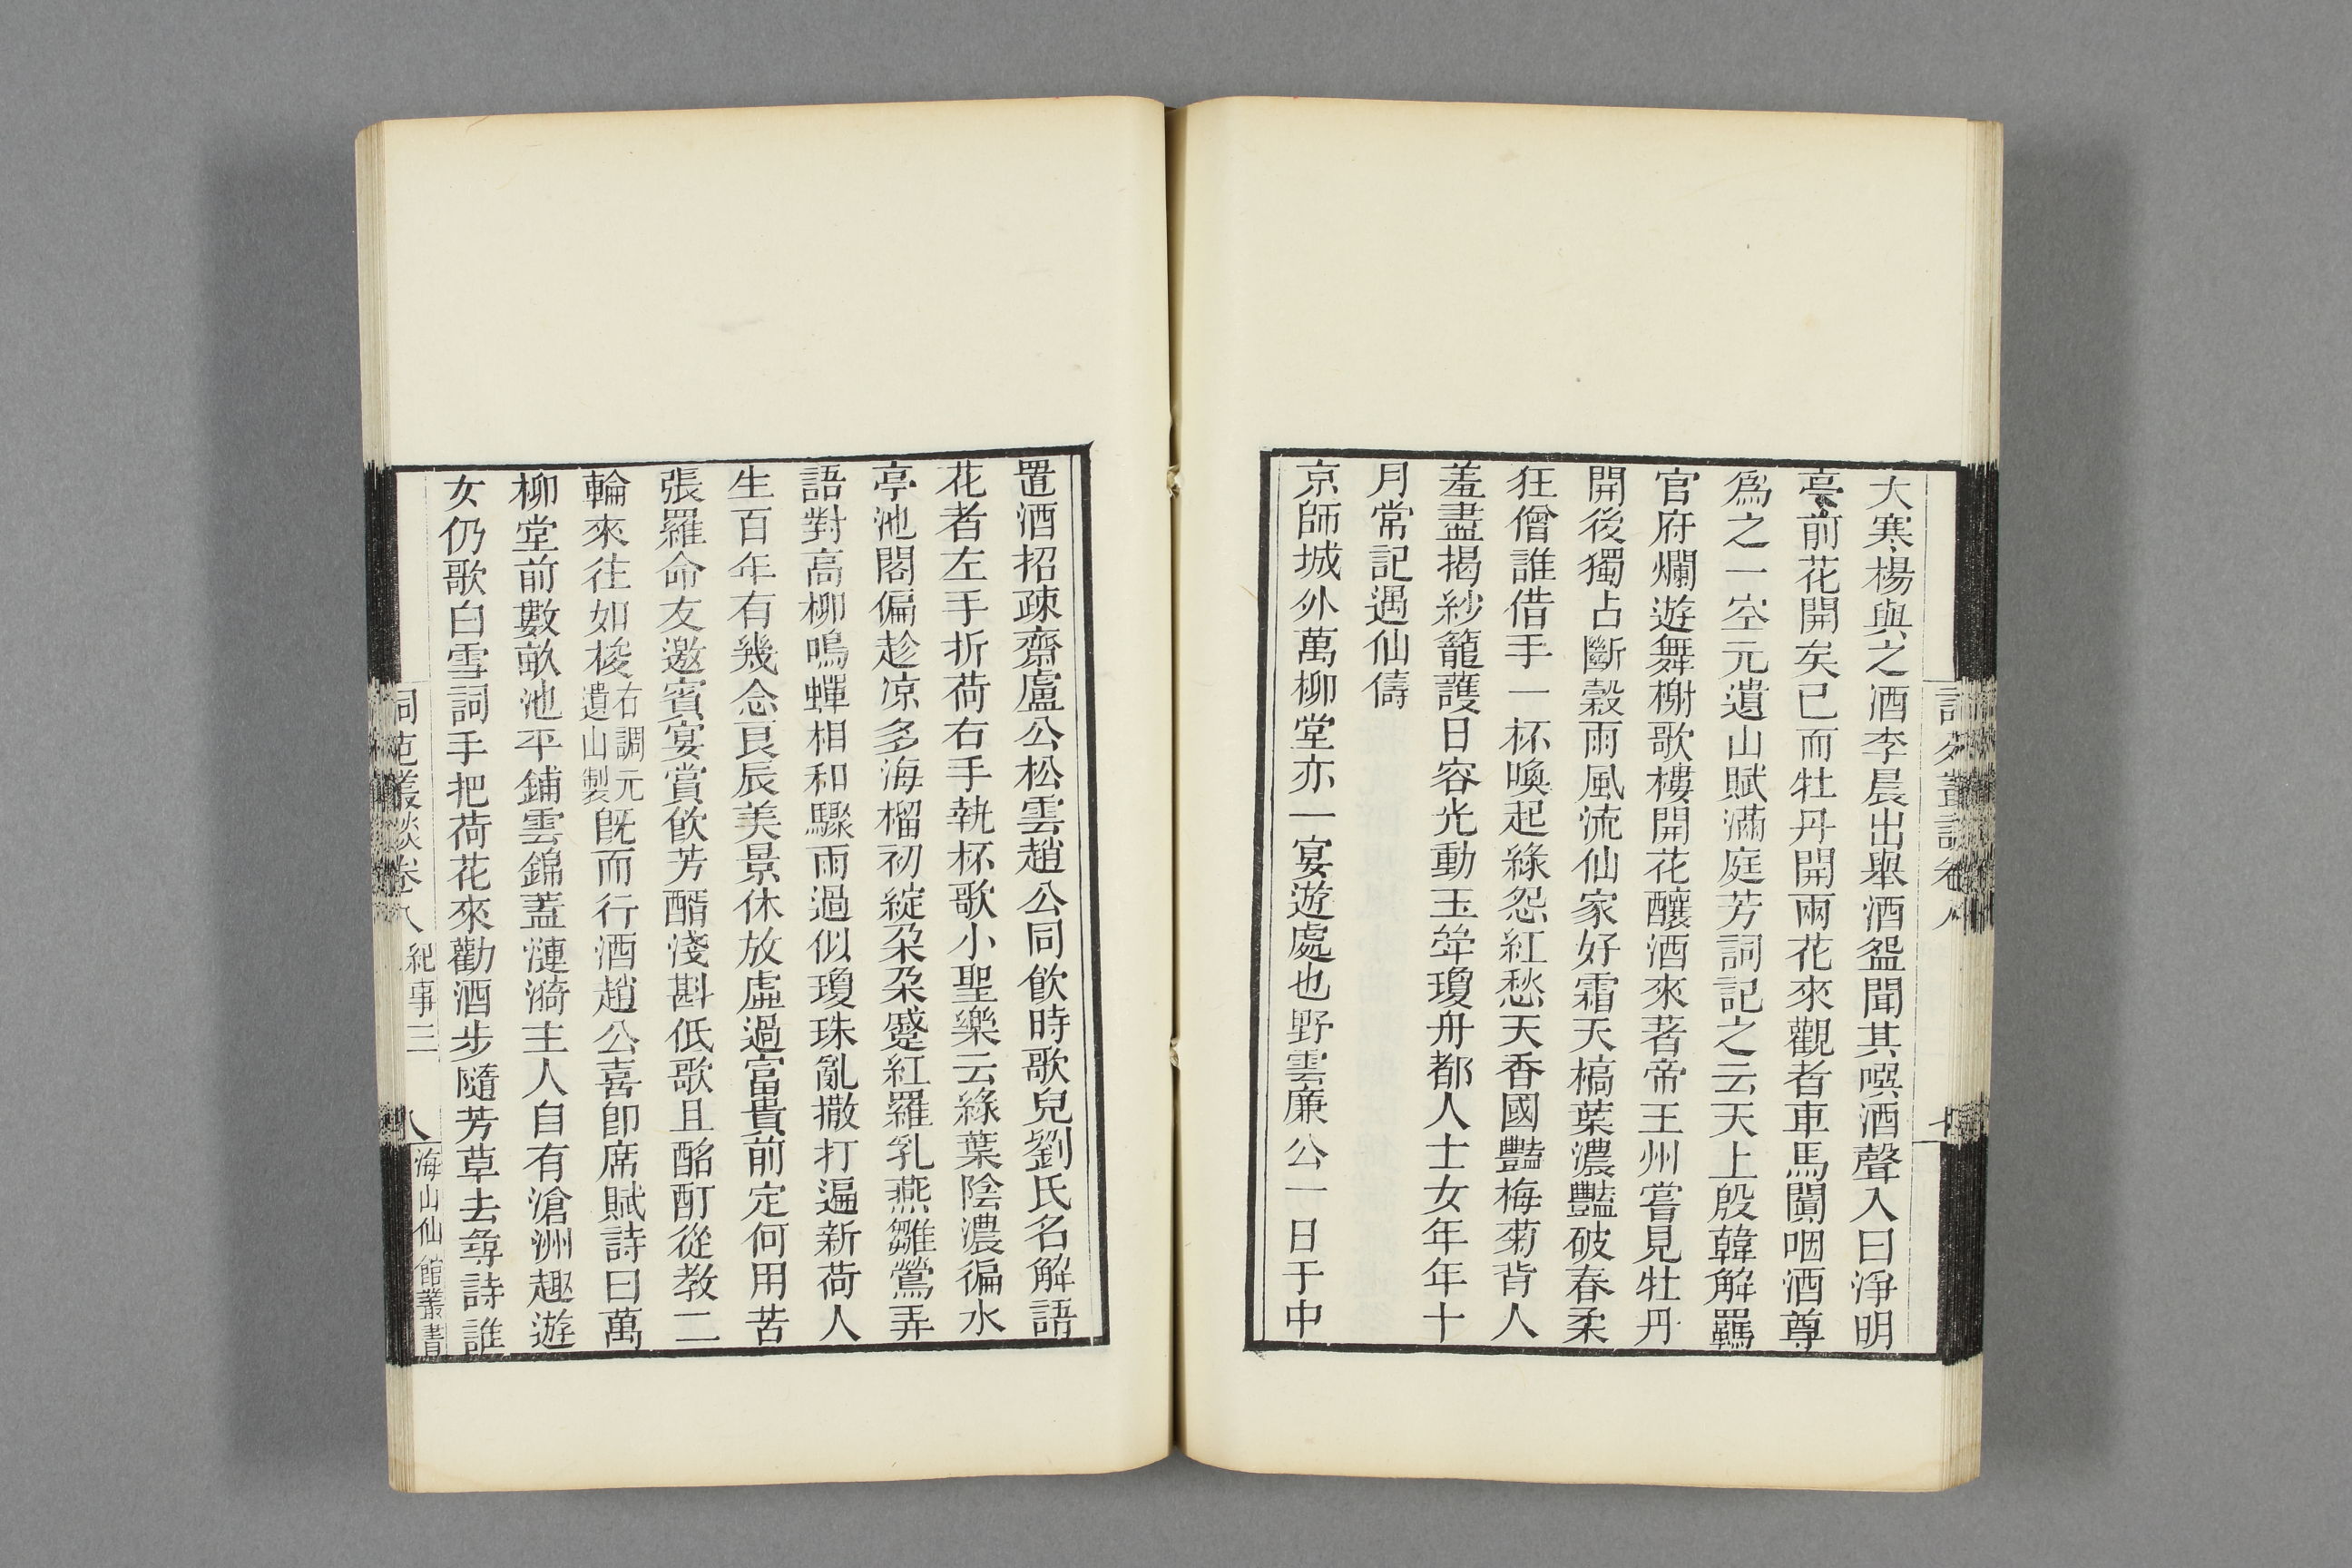 大寒楊與之酒李晨出舉酒盌聞其噀酒聲入曰淨明
亭前花開矣已而牡丹開兩花來觀者車馬闐咽酒尊
爲之一空元遺山賦滿庭芳詞記之云天上殷韓解羈
官府爛遊舞榭歌樓開花釀酒來著帝王州嘗見牡丹
開後獨占斷穀雨風流仙家好霜天槁葉濃豔破春柔
狂僧誰借手一杯喚起綠怨紅愁天香國豔梅菊背人
羞盡揭紗籠護日容光動玉斝瓊舟都人士女年年十
月常記遇仙儔
京師城外萬柳堂亦一宴遊處也野雲廉公一日于中
置酒招疎齋盧公松雲趙公同飮時歌兒劉氏名解語
花者左手折荷右手執杯歌小聖樂云綠葉陰濃徧水
亭池閣偏趁凉多海榴初綻朶朶蹙紅羅乳燕雛鶯弄
語對高柳鳴蟬相和驟雨過似瓊珠亂撒打遍新荷人
生百年有幾念艮辰美景休放虛過富貴前定何用苦
張羅命友邀賓宴賞飮芳醑淺斟低歌且酩酊從教二
輪來往如梭右調元遺山製旣而行酒趙公喜卽席賦詩曰萬
柳堂前數畝池平鋪雲錦蓋漣漪主人自有滄洲趣遊
女仍歌白雪詞手把荷花來勸酒步隨芳草去尋詩誰
詞苑叢談卷八 紀事三 八 海山仙館叢書